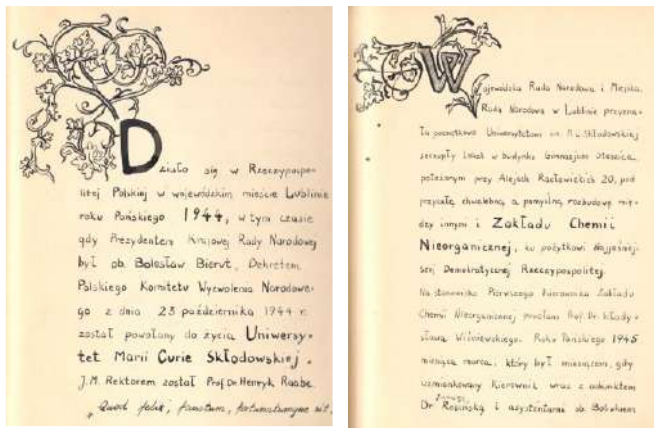 Działo się w Rzeczypospo-
litej Polskiej w wojewódzkim mieście Lublinie
roku Pańskiego 1944, w tym czasie
gdy Prezydentem Krajowej Rady Narodowej
był ob. Bolesław Bierut, Dekretem
Polskiego Komitetu Wyzwolenia Narodowe-
go z dnia 23 października 1944 r.
został powołany do życia Uniwersy-
tet Marii Curie Skłodowskiej.
J.M. Rektorem został Prof. Dr Henryk Raabe.
"Quod felix, faustum, fortunatumque sit.
Wojewódzka Rada Narodowa i Miejska
Rada Narodowa w Lublinie przyzna-
ła początkowo Uniwersytetowi im. M.C. Skłodowskiej
szczupły lokal w budynku Gimnazjum Staszica,
położonym przy Alejach Racławickich 20, pod
przyszłą chwalebną, a pomyślną rozbudowę mię-
dzy innymi i Zakładu Chemii
Nieorganicznej, ku pożytkowi Najjaśniej-
szej Demokratycznej Rzeczypospolitej.
Na stanowisko Pierwszego Kierownika Zakładu
Chemii Nieorganicznej powołano Prof. Dr. Włady-
sława Wiśniewskiego. Roku Pańskiego 1945
miesiąca marca, który był miesiącem, gdy
wzmiankowany Kierownik wraz z adiunktem
Dr Rosińską i asystentami ob.